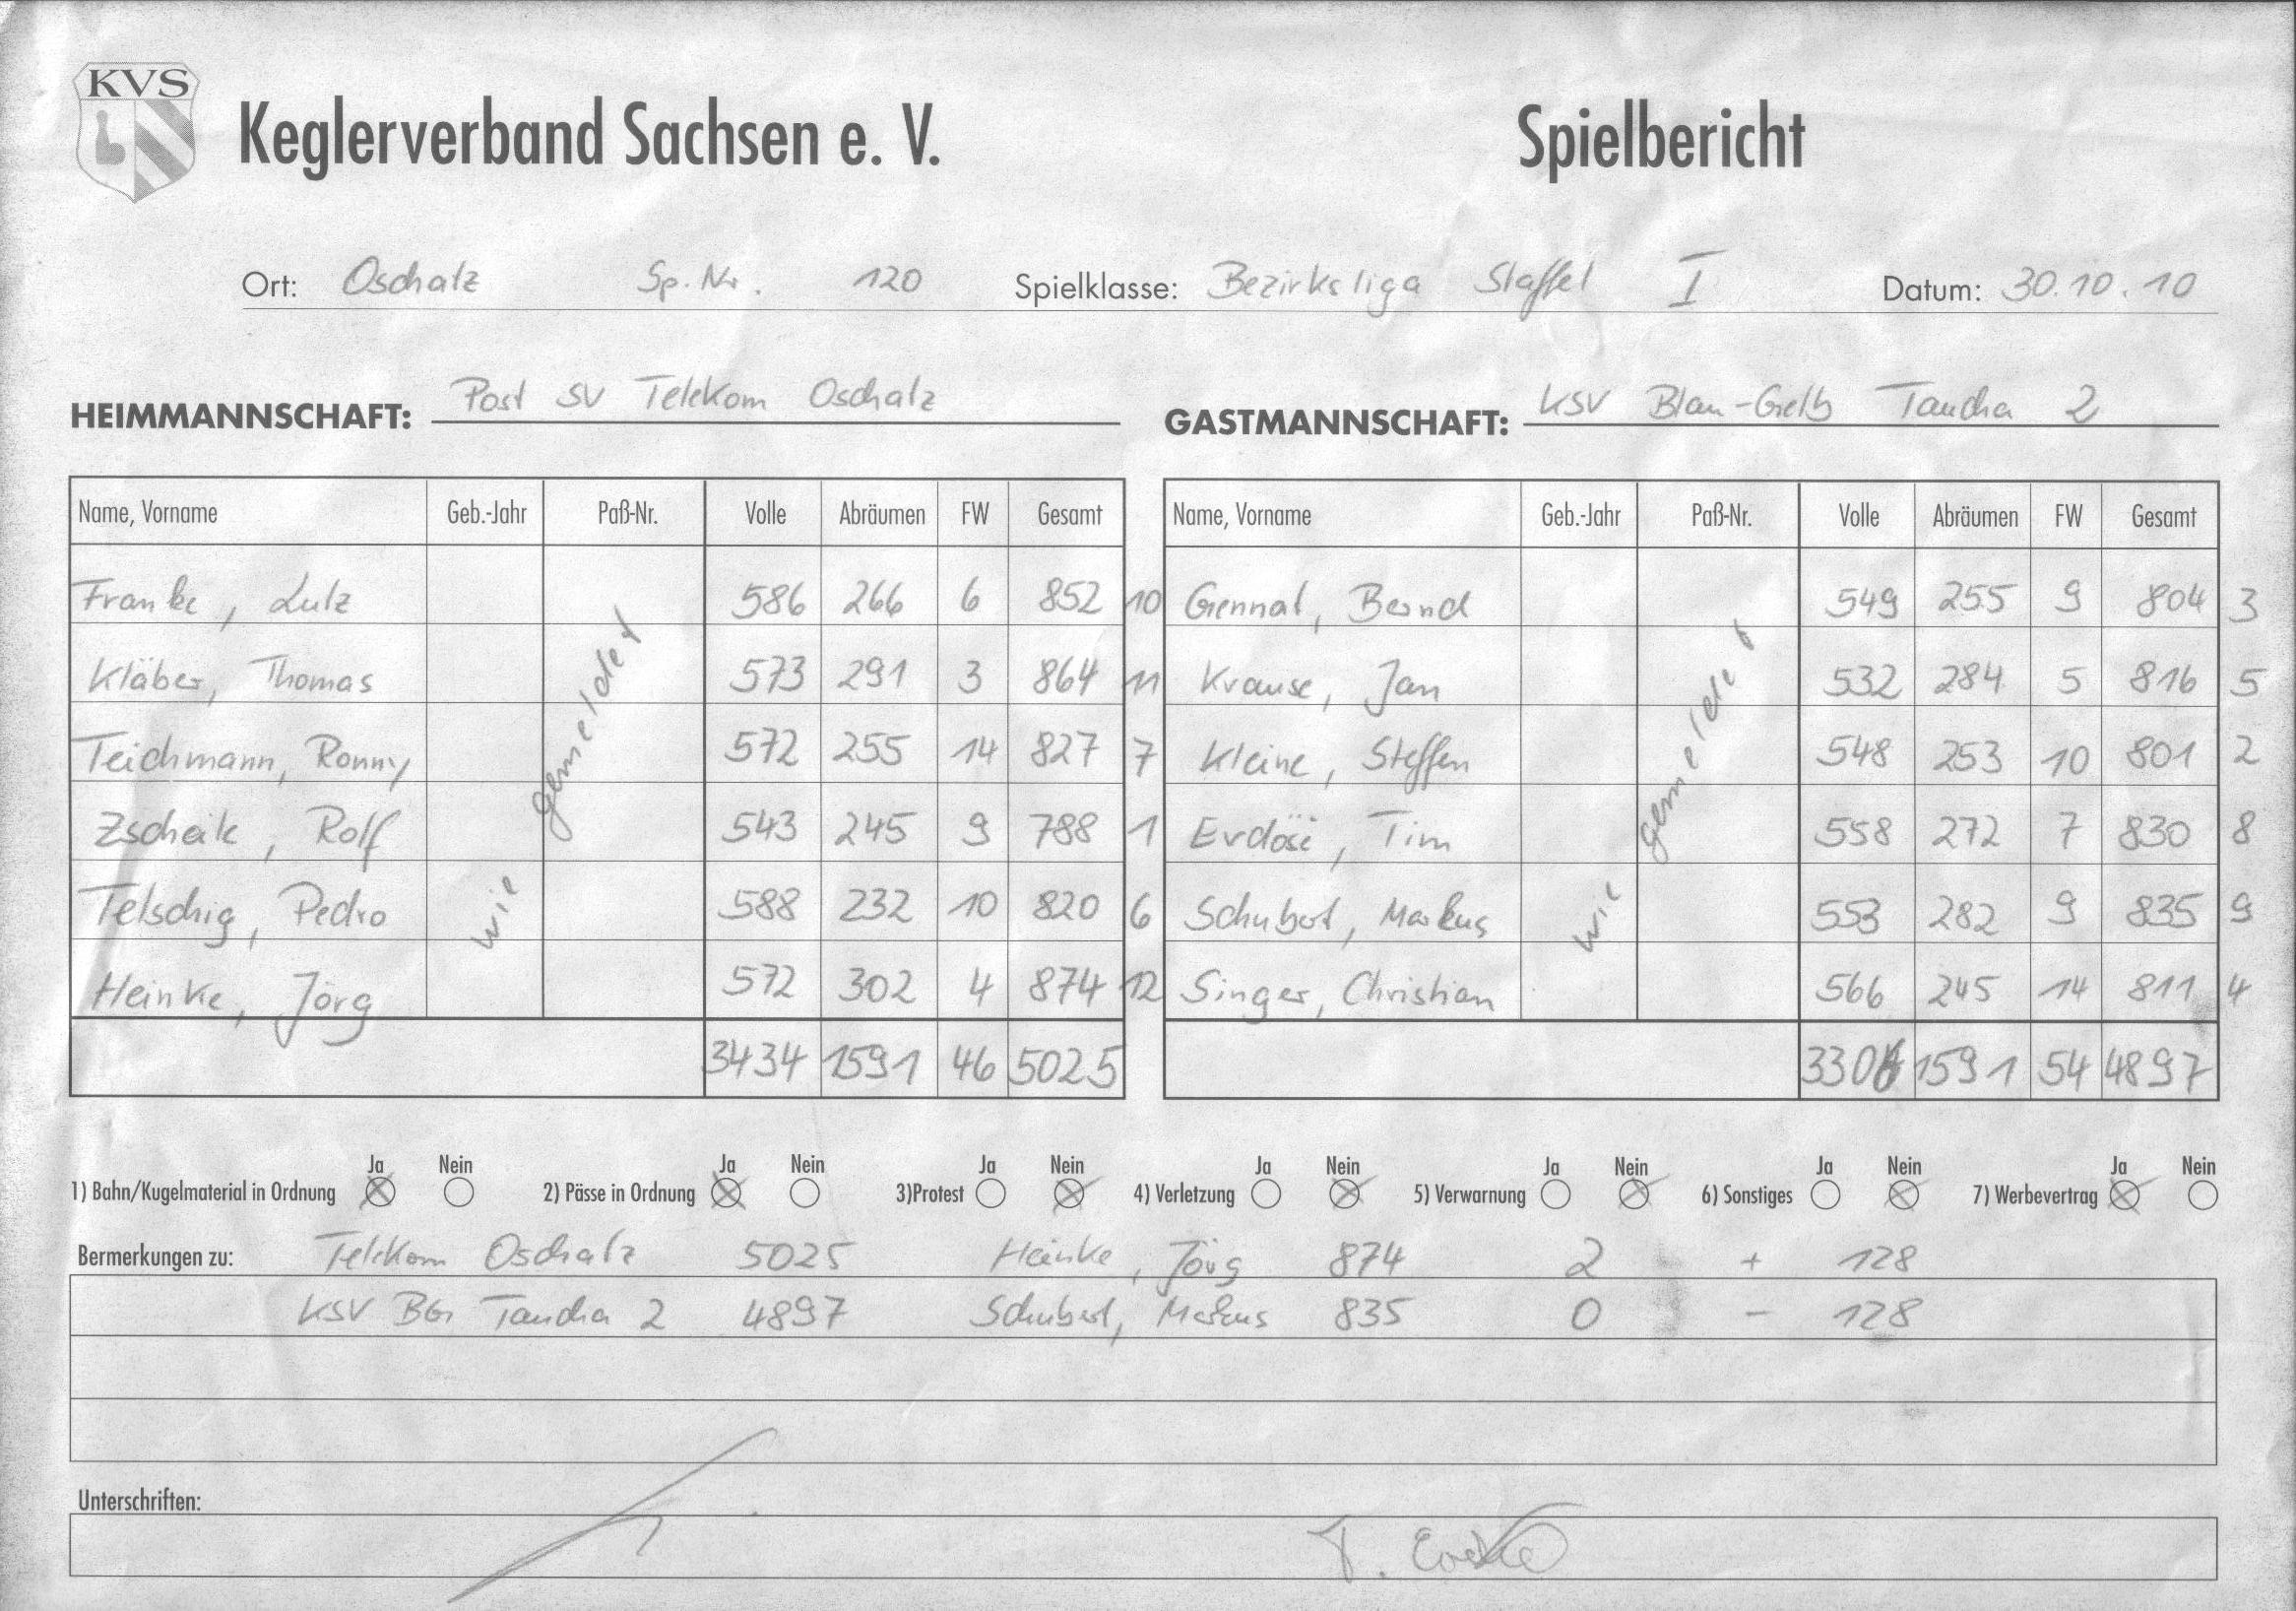 KVS
Keglerverband Sachsen e. V. Spielbericht
Ort: Oschatz Sp. Nr. 120 Spielklasse: Bezirksliga Staffel I Datum: 30.10.10
HEIMMANNSCHAFT: Post SV Telekom Oschatz GASTMANNSCHAFT: KSV Blau-Gelb Taucha 2
Name, Vorname Geb.-Jahr Paß-Nr. Volle Abräumen FW Gesamt Name, Vorname Geb.-Jahr Paß-Nr. Volle Abräumen FW Gesamt
Franke, Lutz 586 266 6 852 10 Gennat, Bernd 549 255 9 804 3
Kläber, Thomas 573 291 3 864 11 Krause, Jan 532 284 5 816 5
Teichmann, Ronny 572 255 14 827 7 Kleine, Steffen 548 253 10 801 2
Zscheile, Rolf 543 245 9 788 1 Erdösi, Tim 558 272 7 830 8
Telschig, Pedro 588 232 10 820 6 Schubert, Markus 553 282 9 835 9
Heinke, Jörg 572 302 4 874 12 Singer, Christian 566 245 14 811 4
wie gemeldet wie gemeldet
3434 1591 46 5025 3306 1591 54 4897
Ja Nein Ja Nein Ja Nein Ja Nein Ja Nein Ja Nein Ja Nein
1) Bahn/Kugelmaterial in Ordnung 2) Pässe in Ordnung 3)Protest 4) Verletzung 5) Verwarnung 6) Sonstiges 7) Werbevertrag
Bermerkungen zu: Telekom Oschatz 5025 Heinke, Jörg 874 2 + 128
KSV BG Taucha 2 4897 Schubert, Markus 835 0 - 128
Unterschriften: